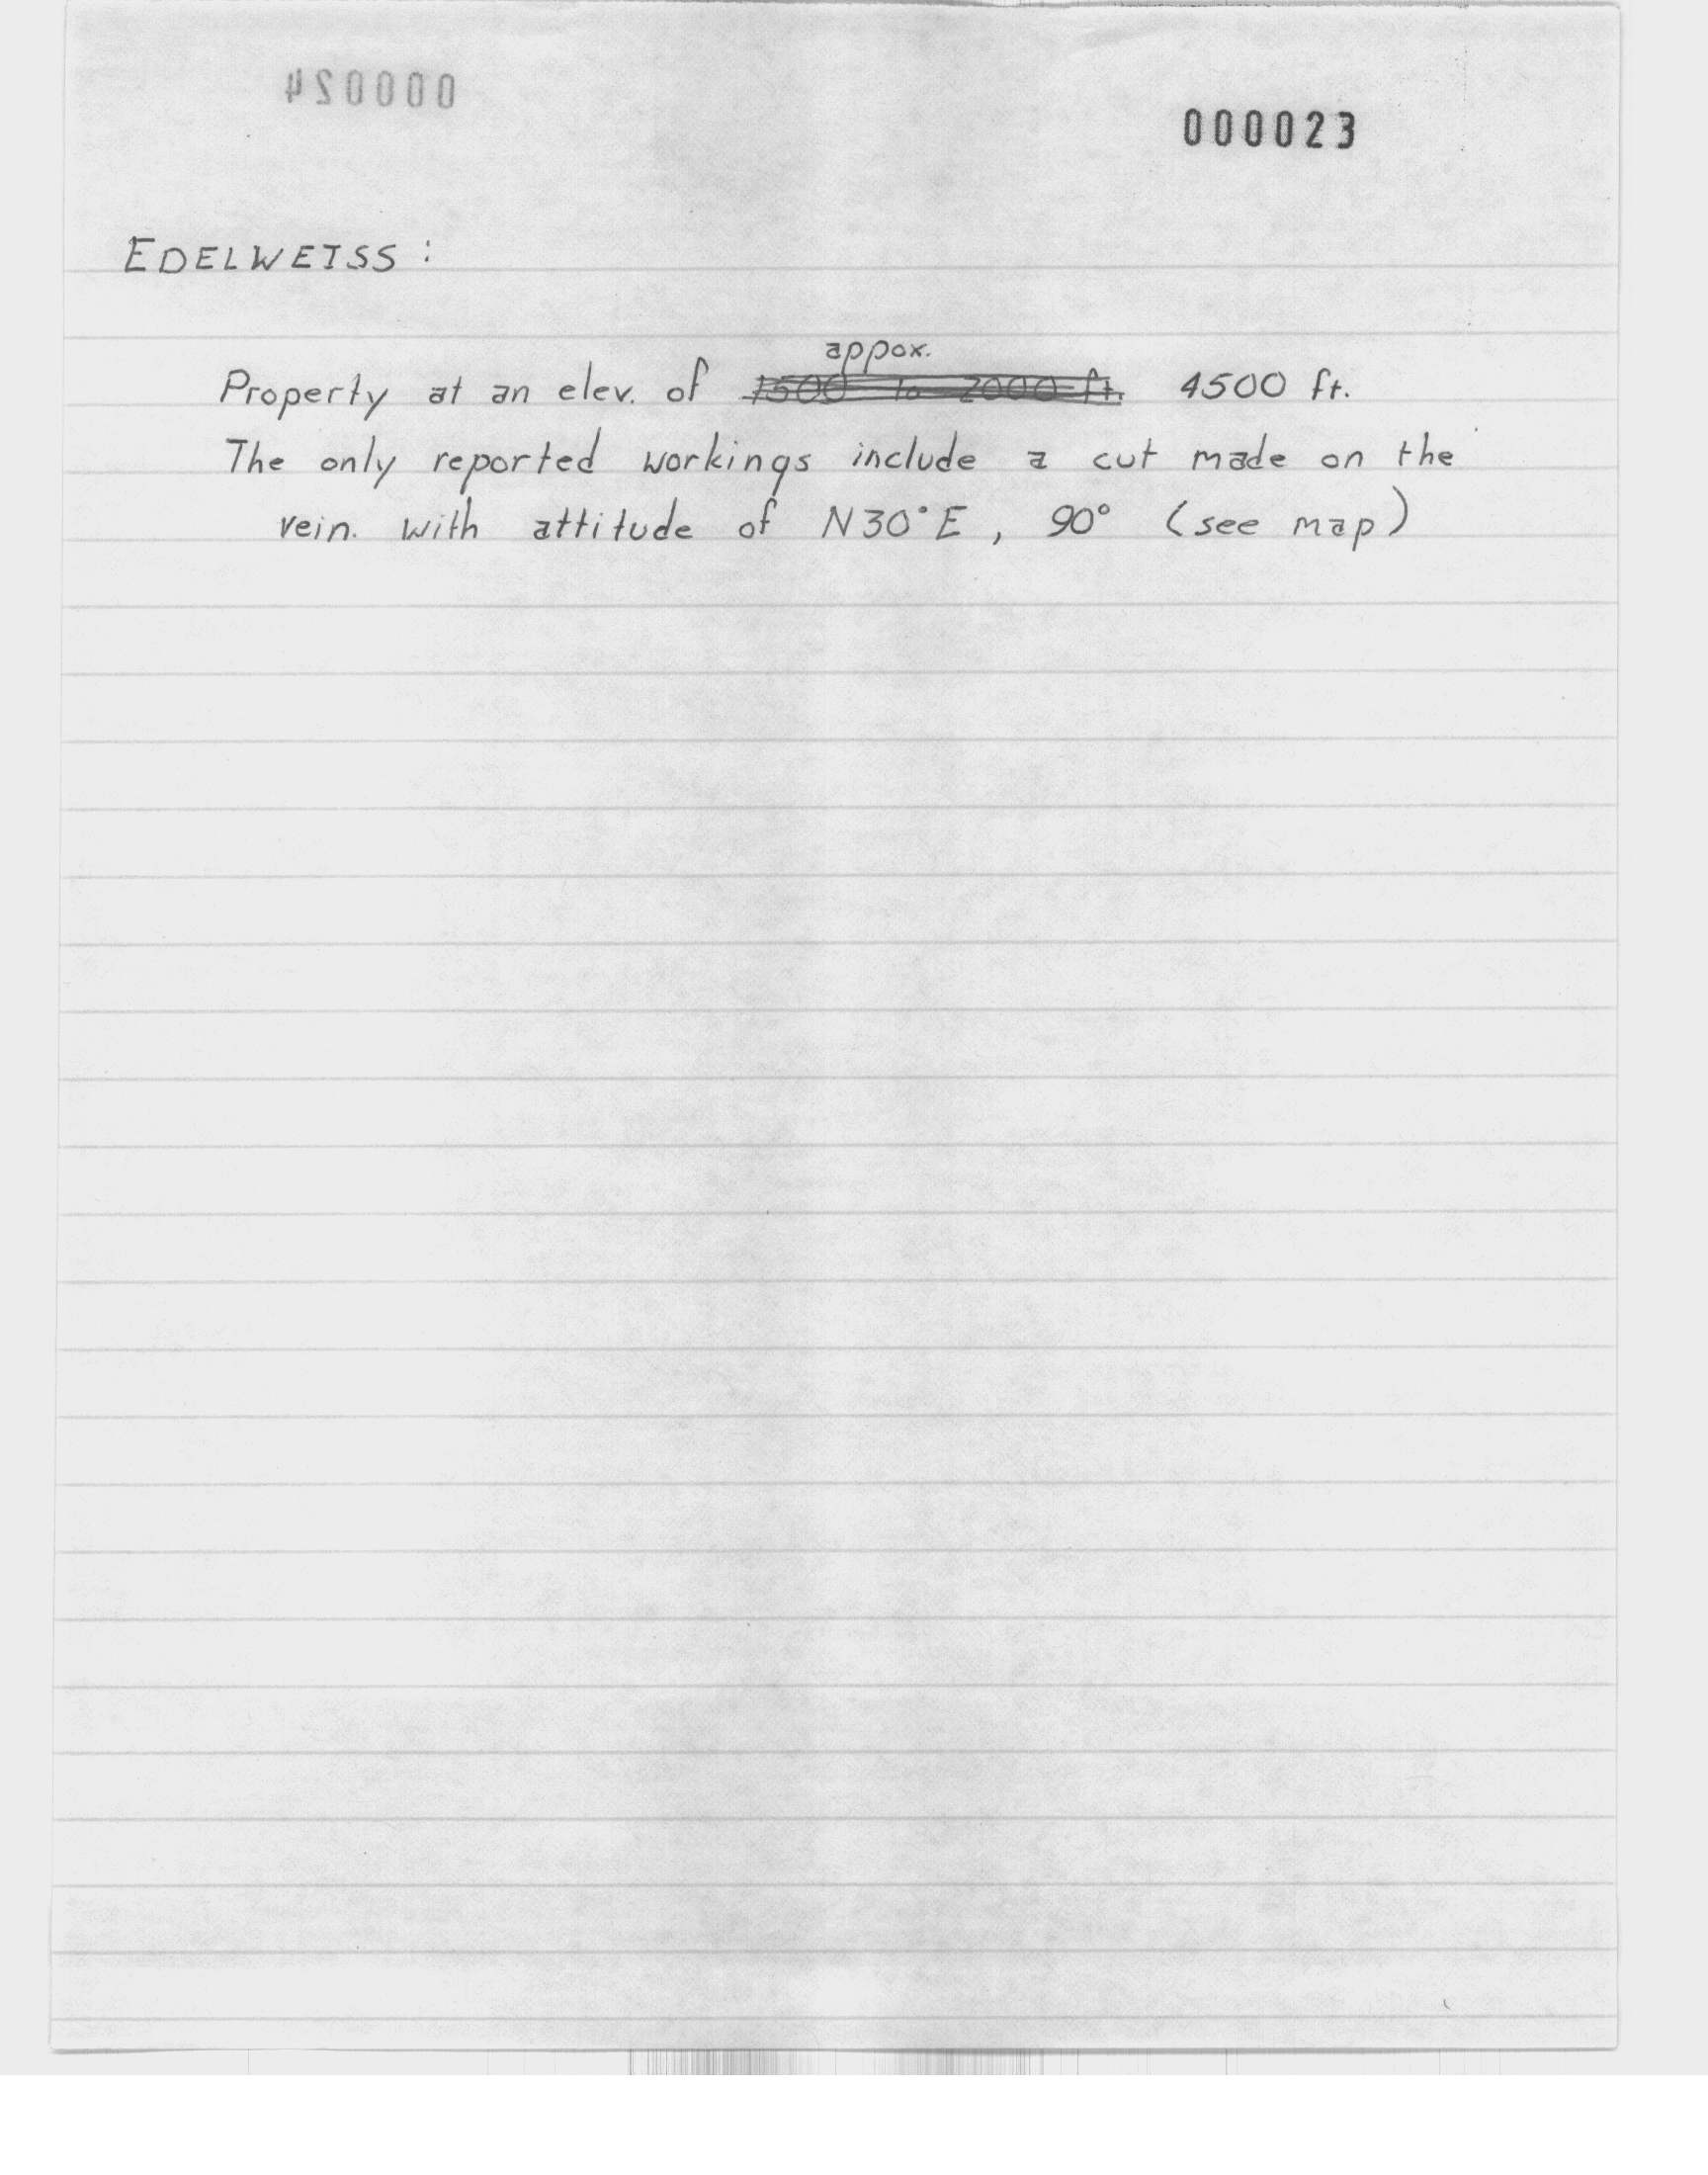 000024
000023
EDELWEISS :
appox.
Property at an elev. of 1500 to 2000 ft. 4500 ft.
The only reported workings include a cut made on the
vein. with attitude of N30°E, 90° (see map)